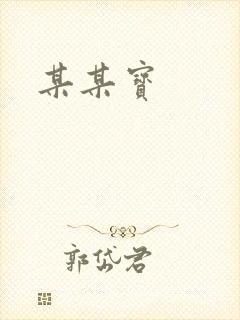 某某寶
郭岱君